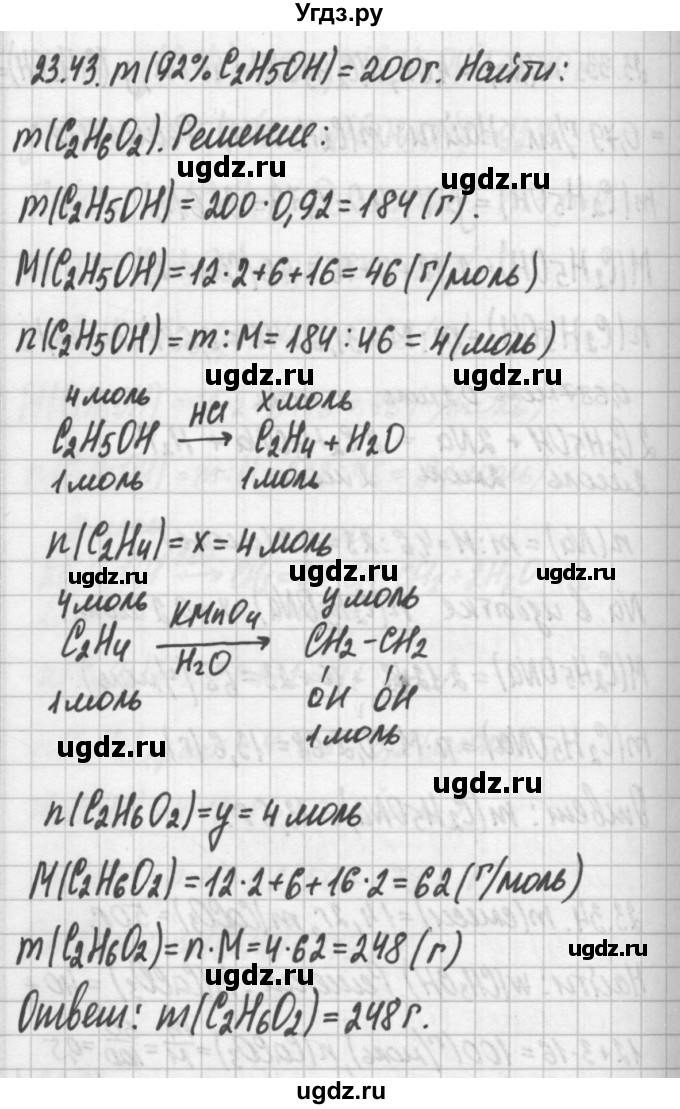 Угдз.ру
23.43. m(92% C₂H₅OH) = 200 г. Найти:
m(C₂H₆O₂). Решение:
ugdz.ru ugdz.ru
m(C₂H₅OH) = 200·0,92 = 184 (г).
M(C₂H₅OH) = 12·2+6+16 = 46 (г/моль)
ugdz.ru
n(C₂H₅OH) = m : M = 184 : 46 = 4 (моль)
ugdz.ru
4 моль HCl x моль
C₂H₅OH → C₂H₄ + H₂O
ugdz.ru
1 моль 1 моль
n(C₂H₄) = x = 4 моль
ugdz.ru ugdz.ru ugdz.ru
4 моль KMnO₄ y моль
C₂H₄ → CH₂-CH₂
H₂O
ugdz.ru
1 моль OH OH
1 моль
ugdz.ru
ugdz.ru
n(C₂H₆O₂) = y = 4 моль
ugdz.ru
M(C₂H₆O₂) = 12·2+6+16·2 = 62 (г/моль)
m(C₂H₆O₂) = n·M = 4·62 = 248 (г)
ugdz.ru
ugdz.ru
Ответ: m(C₂H₆O₂) = 248 г.
ugdz.ru